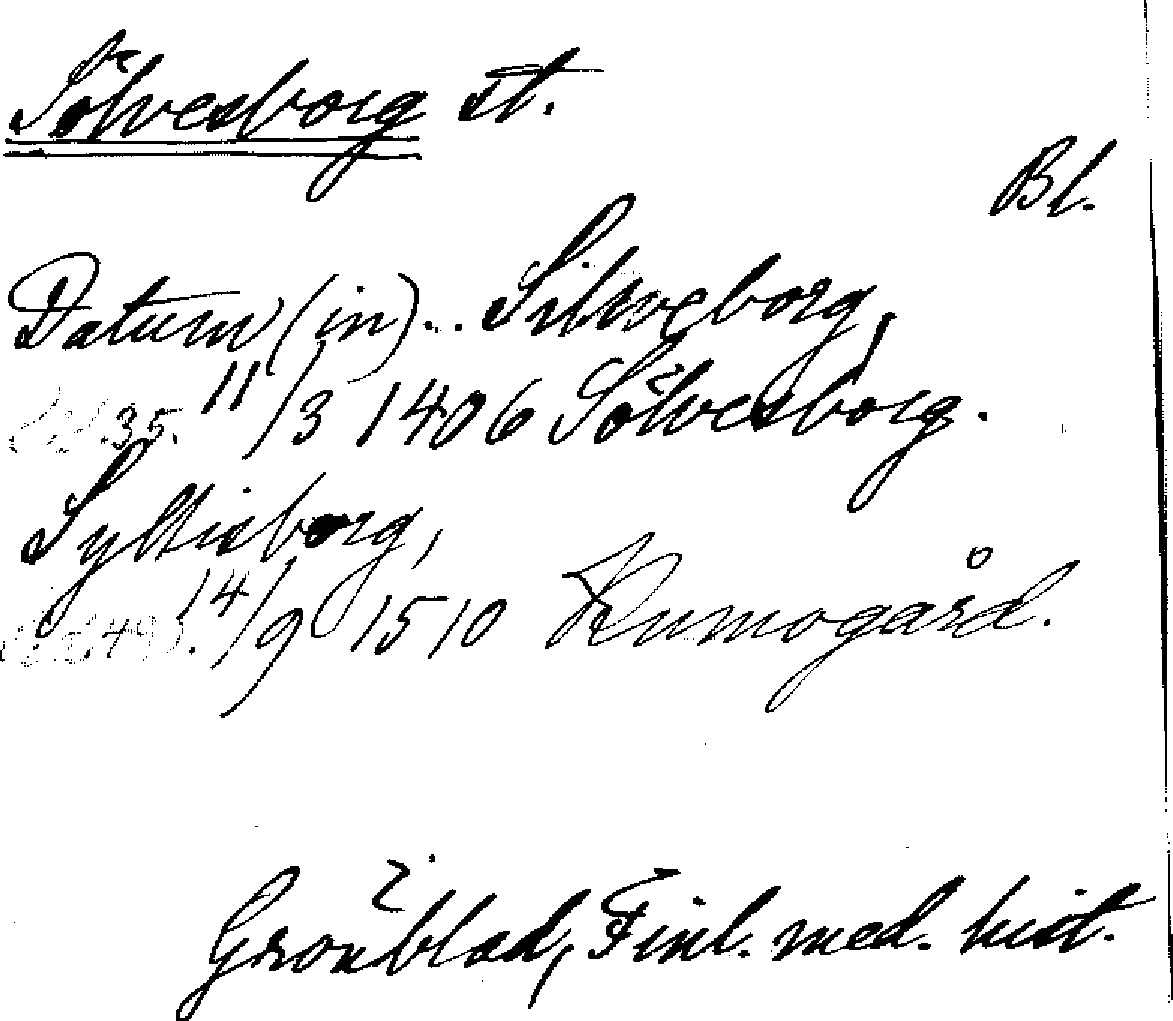 Sölvesborg st.
Bl.
Datum (in)... Silweborg,
35. 11/3 1406 Sölvesborg.
Syltisborg,
14/9 1510 Kumogård.
Grönblad, Finl. med. hist.